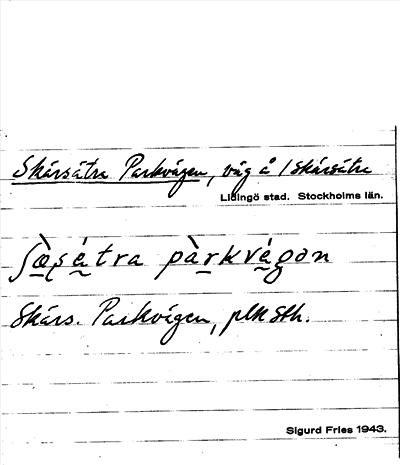 Skärsätra Parkvägen, väg å / Skärsätra
Lidingö stad. Stockholms län.
ʃæ̀ʂétra pàrkvégən
Skärs. Parkvägen, plk Sth.
Sigurd Fries 1943.